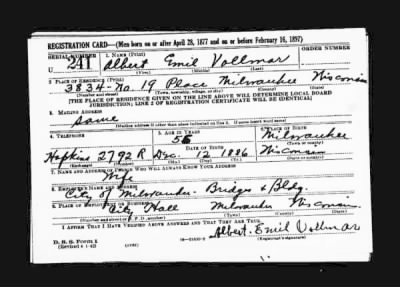 REGISTRATION CARD—(Men born on or after April 28, 1877 and on or before February 16, 1897)
SERIAL NUMBER 1. NAME (Print) ORDER NUMBER
U 241 Albert Emil Vollmar
(First) (Middle) (Last)
2. PLACE OF RESIDENCE (Print)
3834-No. 19 Place Milwaukee Wisconsin
(Number and street) (Town, township, village, or city) (County) (State)
[THE PLACE OF RESIDENCE GIVEN ON THE LINE ABOVE WILL DETERMINE LOCAL BOARD
JURISDICTION; LINE 2 OF REGISTRATION CERTIFICATE WILL BE IDENTICAL]
3. MAILING ADDRESS
Same
[Mailing address if other than place indicated on line 2. If same insert word same]
4. TELEPHONE 5. AGE IN YEARS 6. PLACE OF BIRTH
56 Milwaukee
DATE OF BIRTH (Town or county)
Hopkins 2792 R Dec. 12 1886 Wisconsin
(Exchange) (Number) (Mo.) (Day) (Yr.) (State or country)
7. NAME AND ADDRESS OF PERSON WHO WILL ALWAYS KNOW YOUR ADDRESS
8. EMPLOYER'S NAME AND ADDRESS
City of Milwaukee Bridges & Bldg.
9. PLACE OF EMPLOYMENT OR BUSINESS
City Hall Milwaukee Wisconsin
(Number and street or R. F. D. number) (Town) (County) (State)
I AFFIRM THAT I HAVE VERIFIED ABOVE ANSWERS AND THAT THEY ARE TRUE.
D. S. S. Form 1 Albert Emil Vollmar
(Revised 4-1-42) (over) (Registrant's signature)